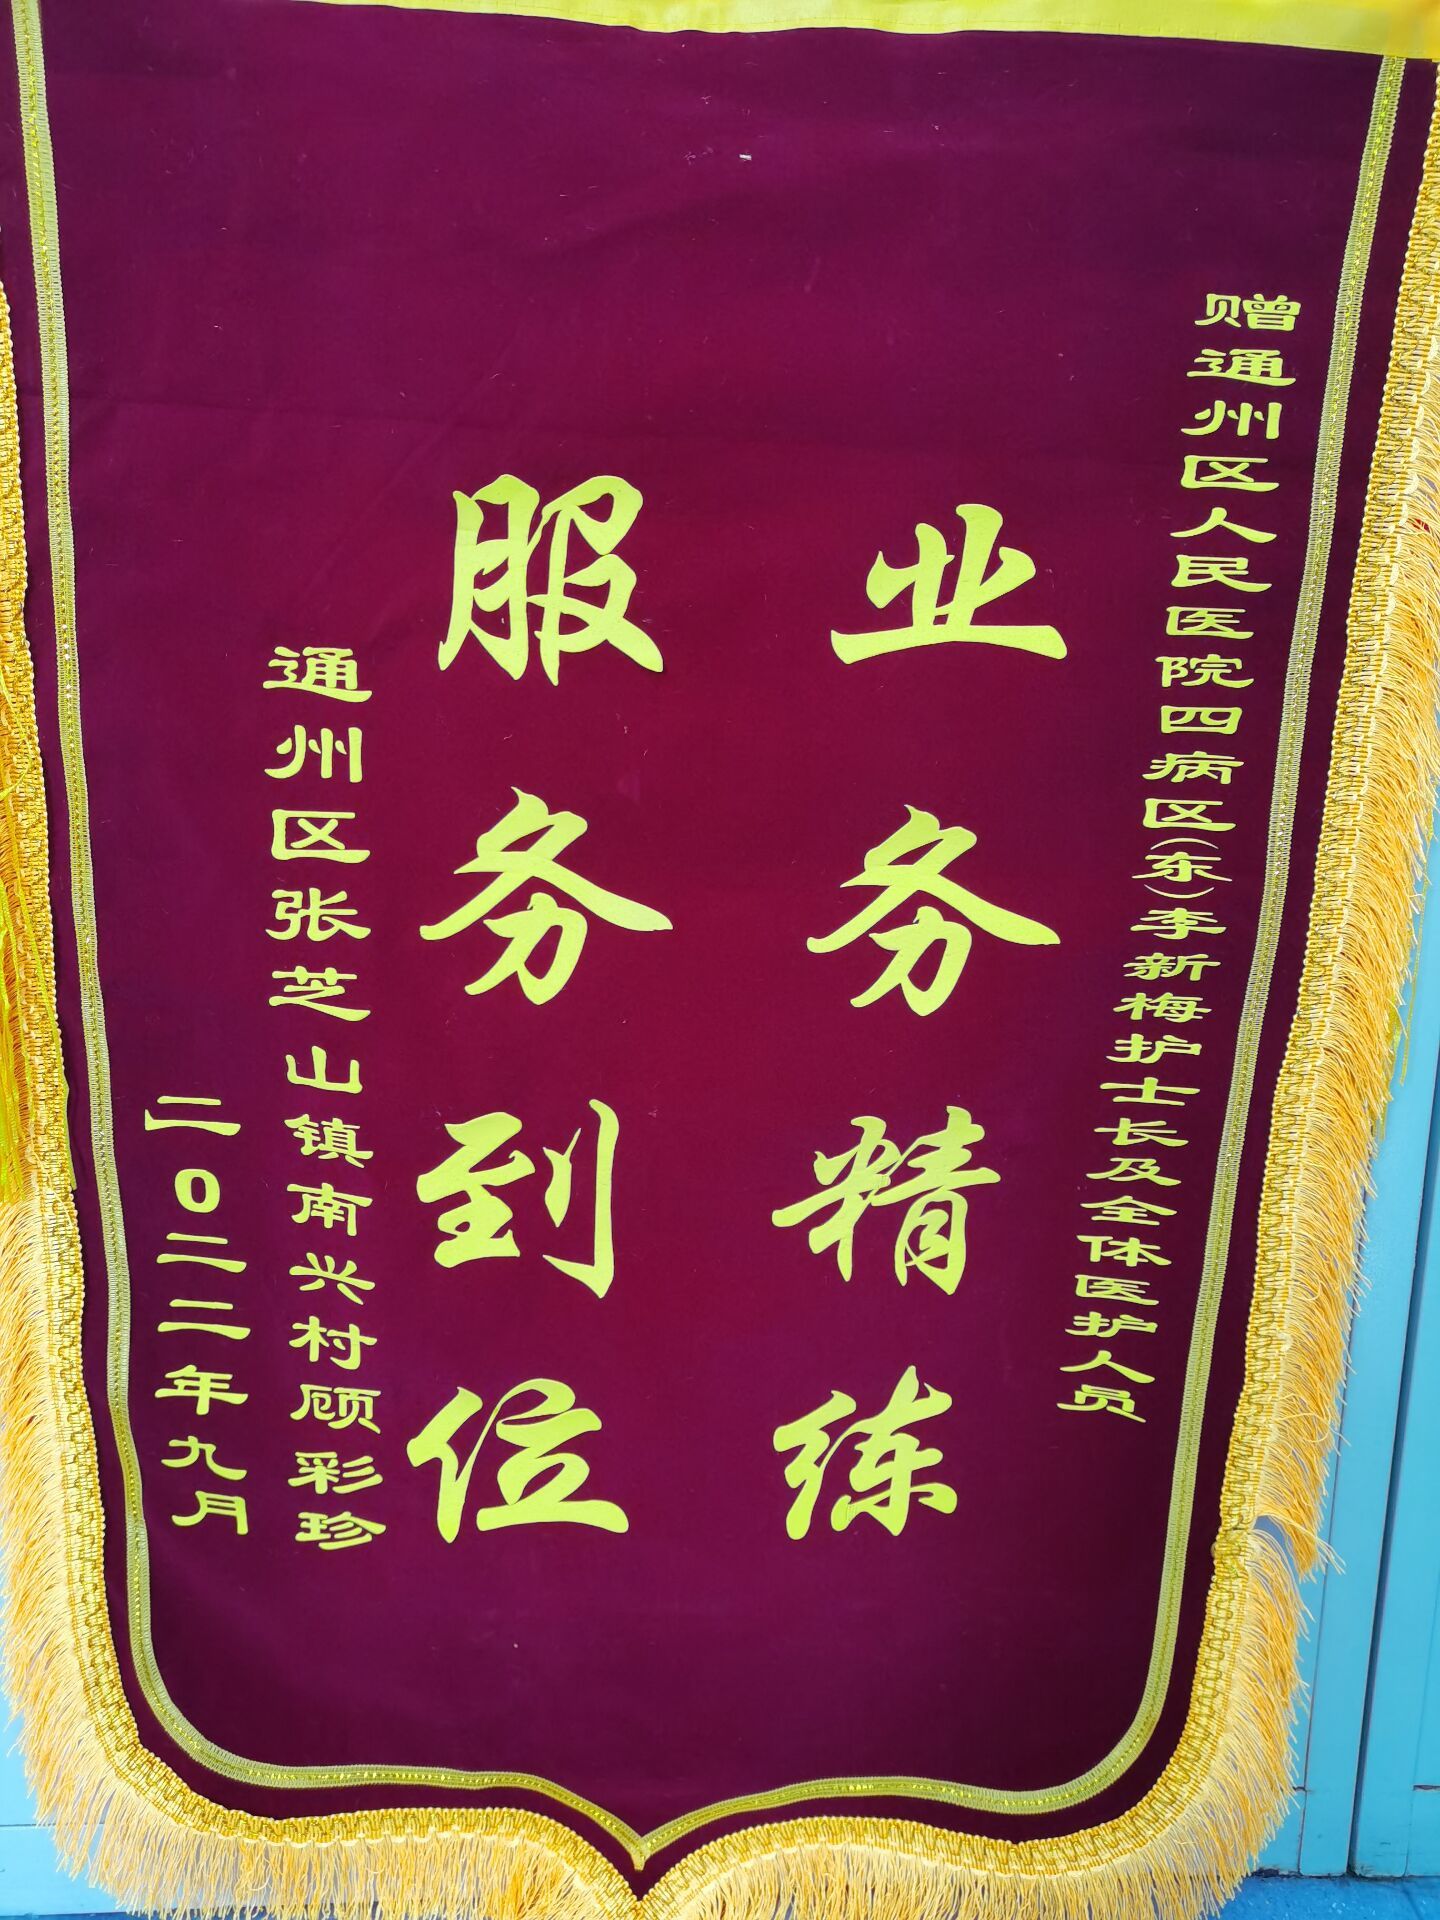 赠通州区人民医院四病区(东)李新梅护士长及全体医护人员
业务精练
服务到位
通州区张芝山镇南兴村顾彩珍
二0二二年九月